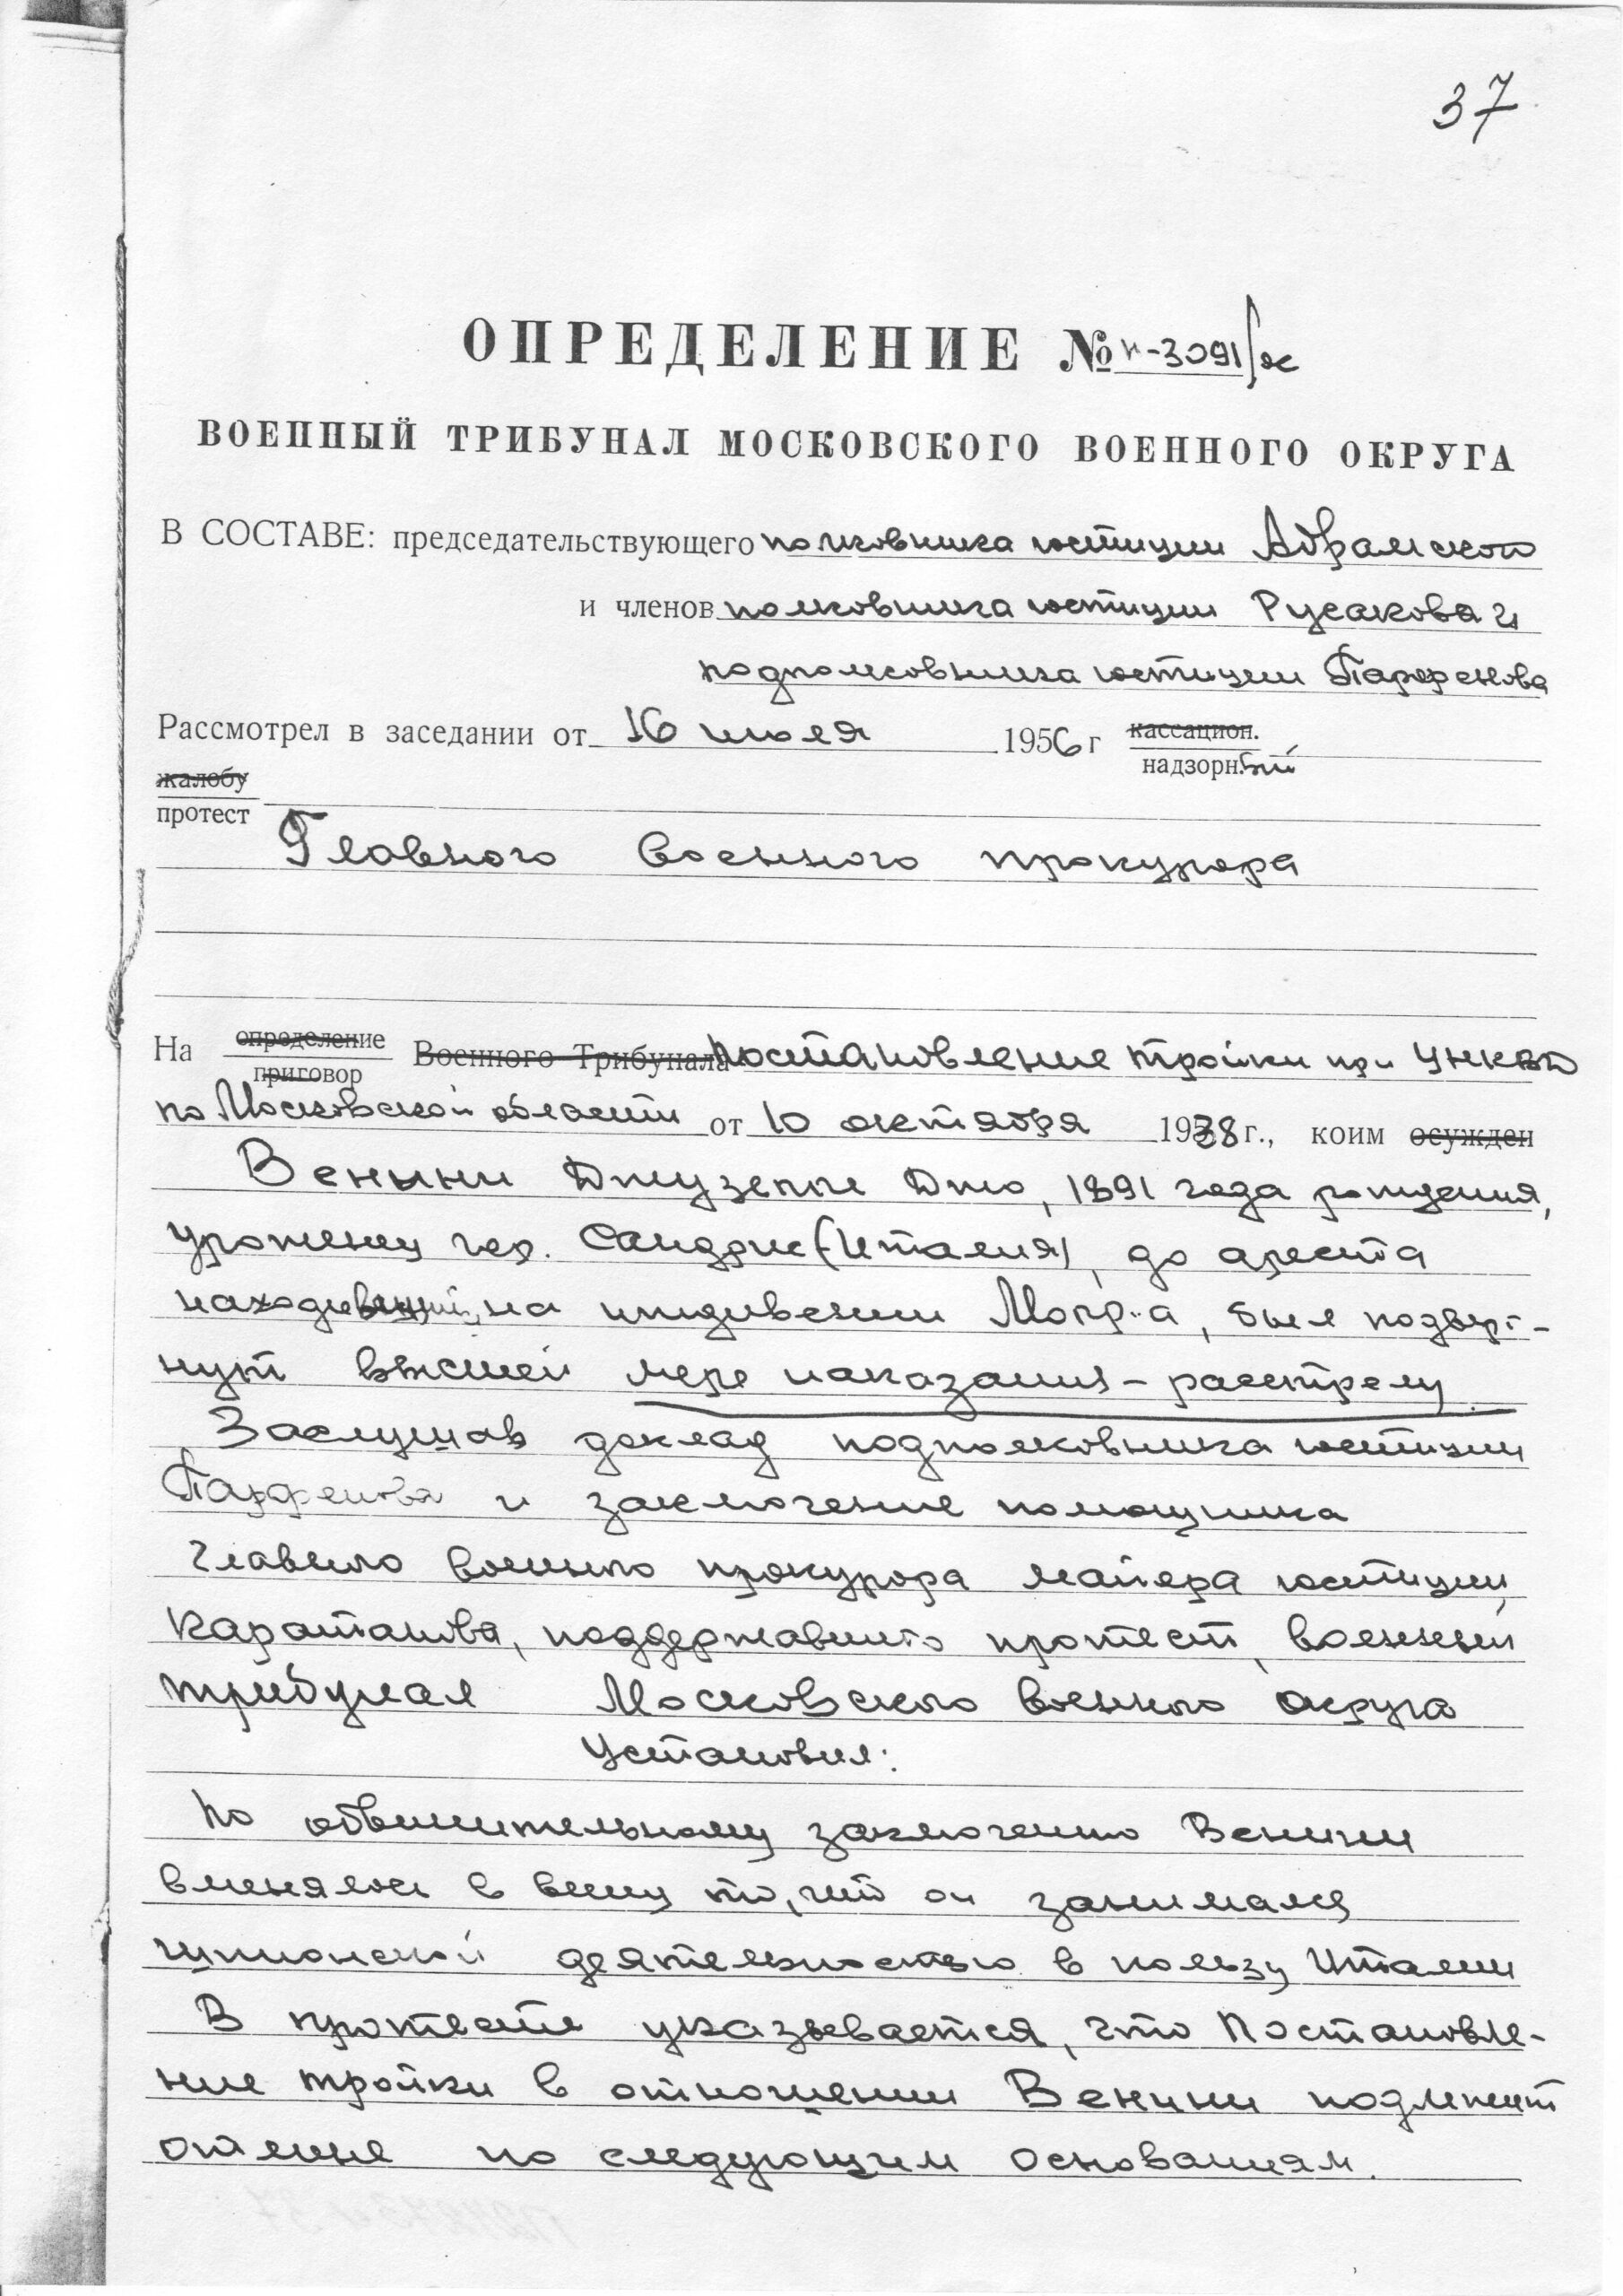 37
ОПРЕДЕЛЕНИЕ № н-3091/ос
ВОЕННЫЙ ТРИБУНАЛ МОСКОВСКОГО ВОЕННОГО ОКРУГА
В СОСТАВЕ: председательствующего полковника юстиции Абрамского
и членов полковника юстиции Русакова и
подполковника юстиции Парфенова
Рассмотрел в заседании от 16 июля 1956 г кассацион.
надзорный
жалобу
протест
Главного военного прокурора
На определение Военного Трибунала постановление тройки при УНКВД
приговор
по Московской области от 10 октября 1938 г., коим осужден
Венини Джузеппе Дто, 1891 года рождения,
уроженец гор. (Италия), до ареста
находившийся на иждивении Мопр-а, был подверг-
нут высшей мере наказания – расстрелу.
Заслушав доклад подполковника юстиции
Парфенова и заключение помощника
главного военного прокурора майора юстиции
Каратаева, поддержавшего протест, военный
трибунал Московского военного округа
Установил:
По обвинительному заключению Венини
вменялось в вину то, что он занимался
шпионской деятельностью в пользу Италии
В протесте указывается, что Постановле-
ние тройки в отношении Венини подлежит
отмене по следующим основаниям.